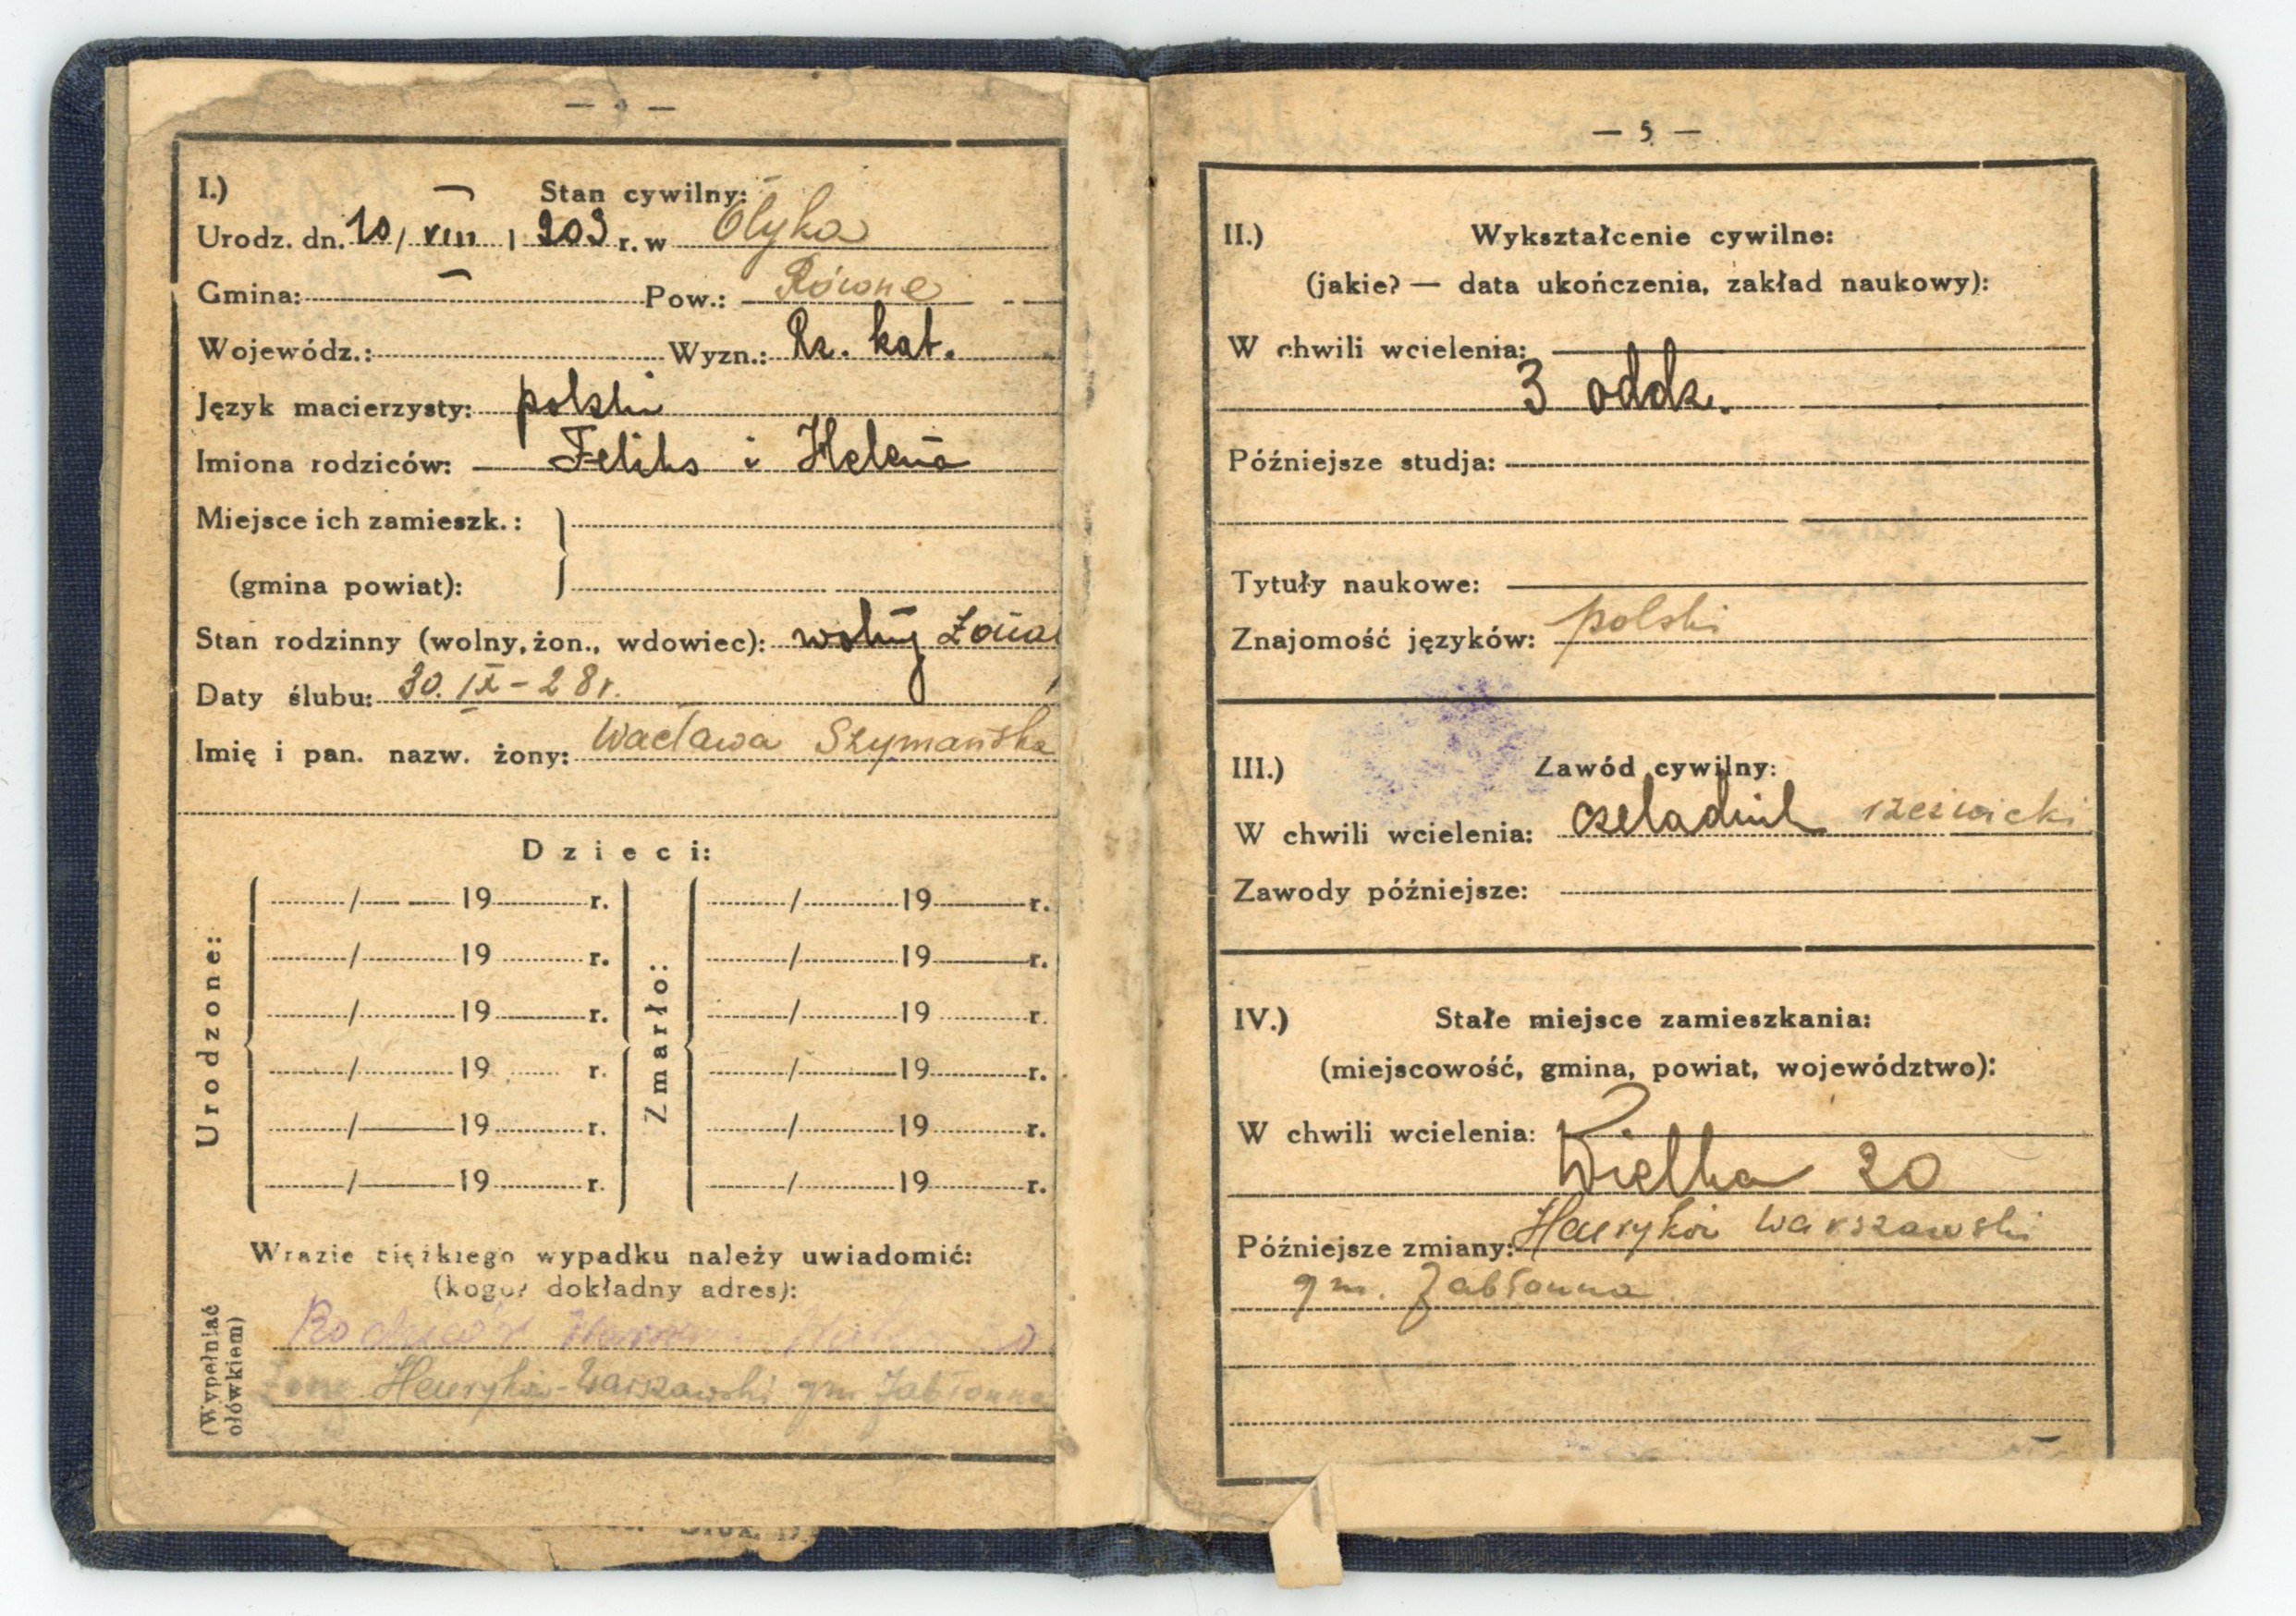 I.) Stan cywilny:
Urodz. dn. 10/ VIII 1 903 r. w Ołyka
Gmina: Pow.: Równe
Wojewódz.: Wyzn.: Rz. kat.
Język macierzysty: polski
Imiona rodziców: Feliks i Helena
Miejsce ich zamieszk.:
(gmina powiat):
Stan rodzinny (wolny, żon., wdowiec): wolny żona
Daty ślubu: 30. IX - 28 r.
Imię i pan. nazw. żony: Wacława Szymańska
Dzieci:
Urodzone:
Zmarło:
/ 19 r. / 19 r.
/ 19 r. / 19 r.
/ 19 r. / 19 r.
/ 19 r. / 19 r.
/ 19 r. / 19 r.
/ 19 r. / 19 r.
Wrazie ciężkiego wypadku należy uwiadomić:
(kogo? dokładny adres):
(Wypełniać ołówkiem)
Rodziców
Henryków-Warszawski gm Jabłonna
— 5 —
II.) Wykształcenie cywilne:
(jakie? — data ukończenia, zakład naukowy):
W chwili wcielenia:
3 oddz.
Późniejsze studja:
Tytuły naukowe:
Znajomość języków: polski
III.) Zawód cywilny:
W chwili wcielenia: czeladnik rzeźnicki
Zawody późniejsze:
IV.) Stałe miejsce zamieszkania:
(miejscowość, gmina, powiat, województwo):
W chwili wcielenia:
Wielka 20
Późniejsze zmiany: Henryków Warszawski
gm. Jabłonna